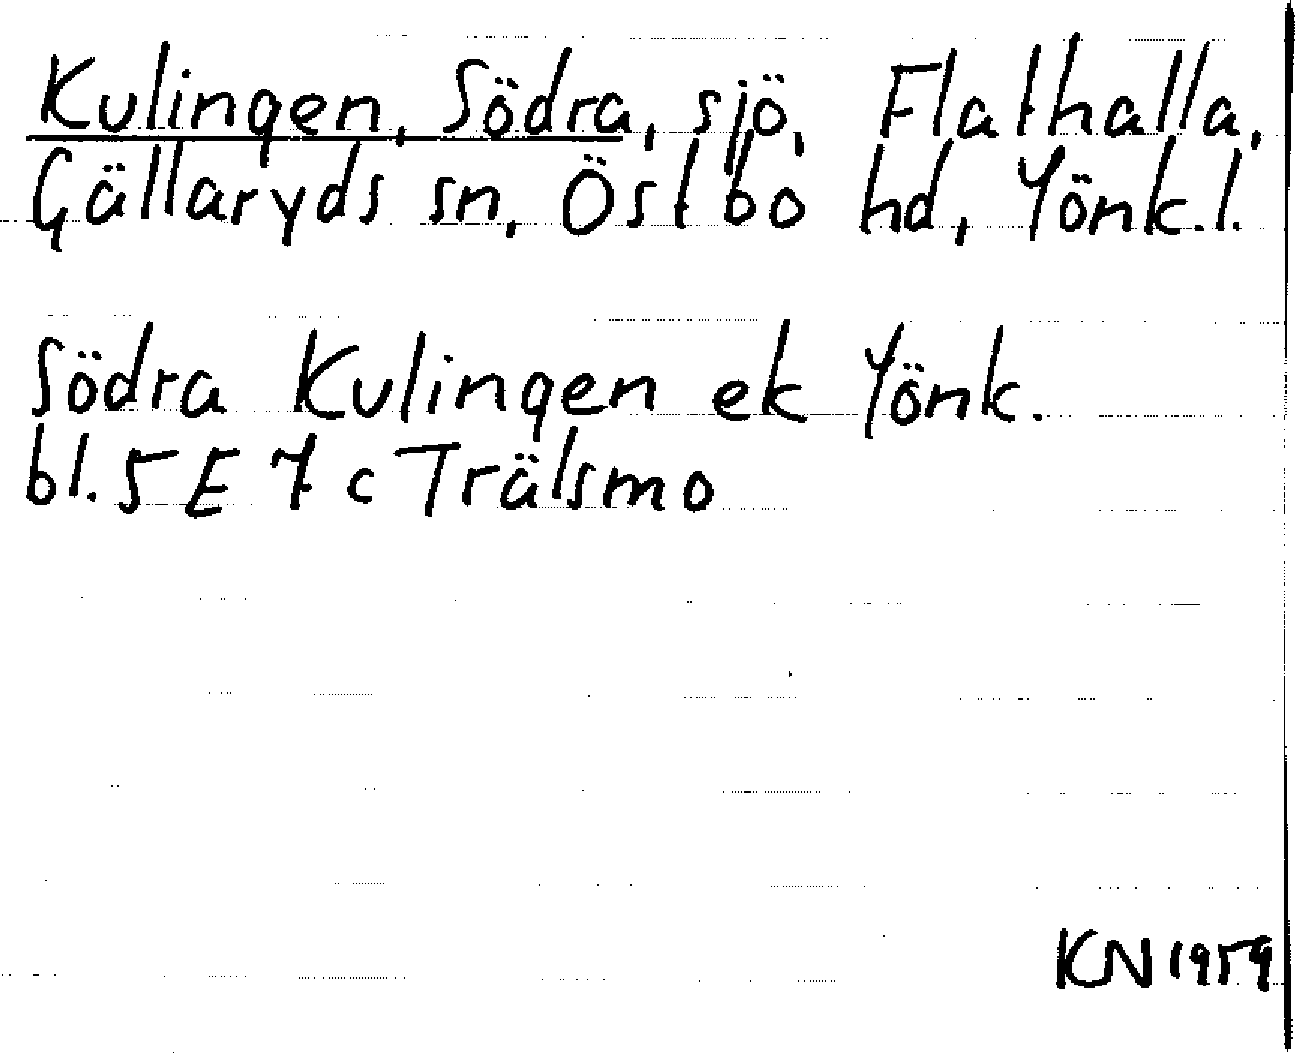 Kulingen, Södra, sjö, Flathalla,
Gällaryds sn, Östbo hd, Jönk.l.
Södra Kulingen ek Jönk.
bl. 5 E 7 c Trälsmo
KN 1959